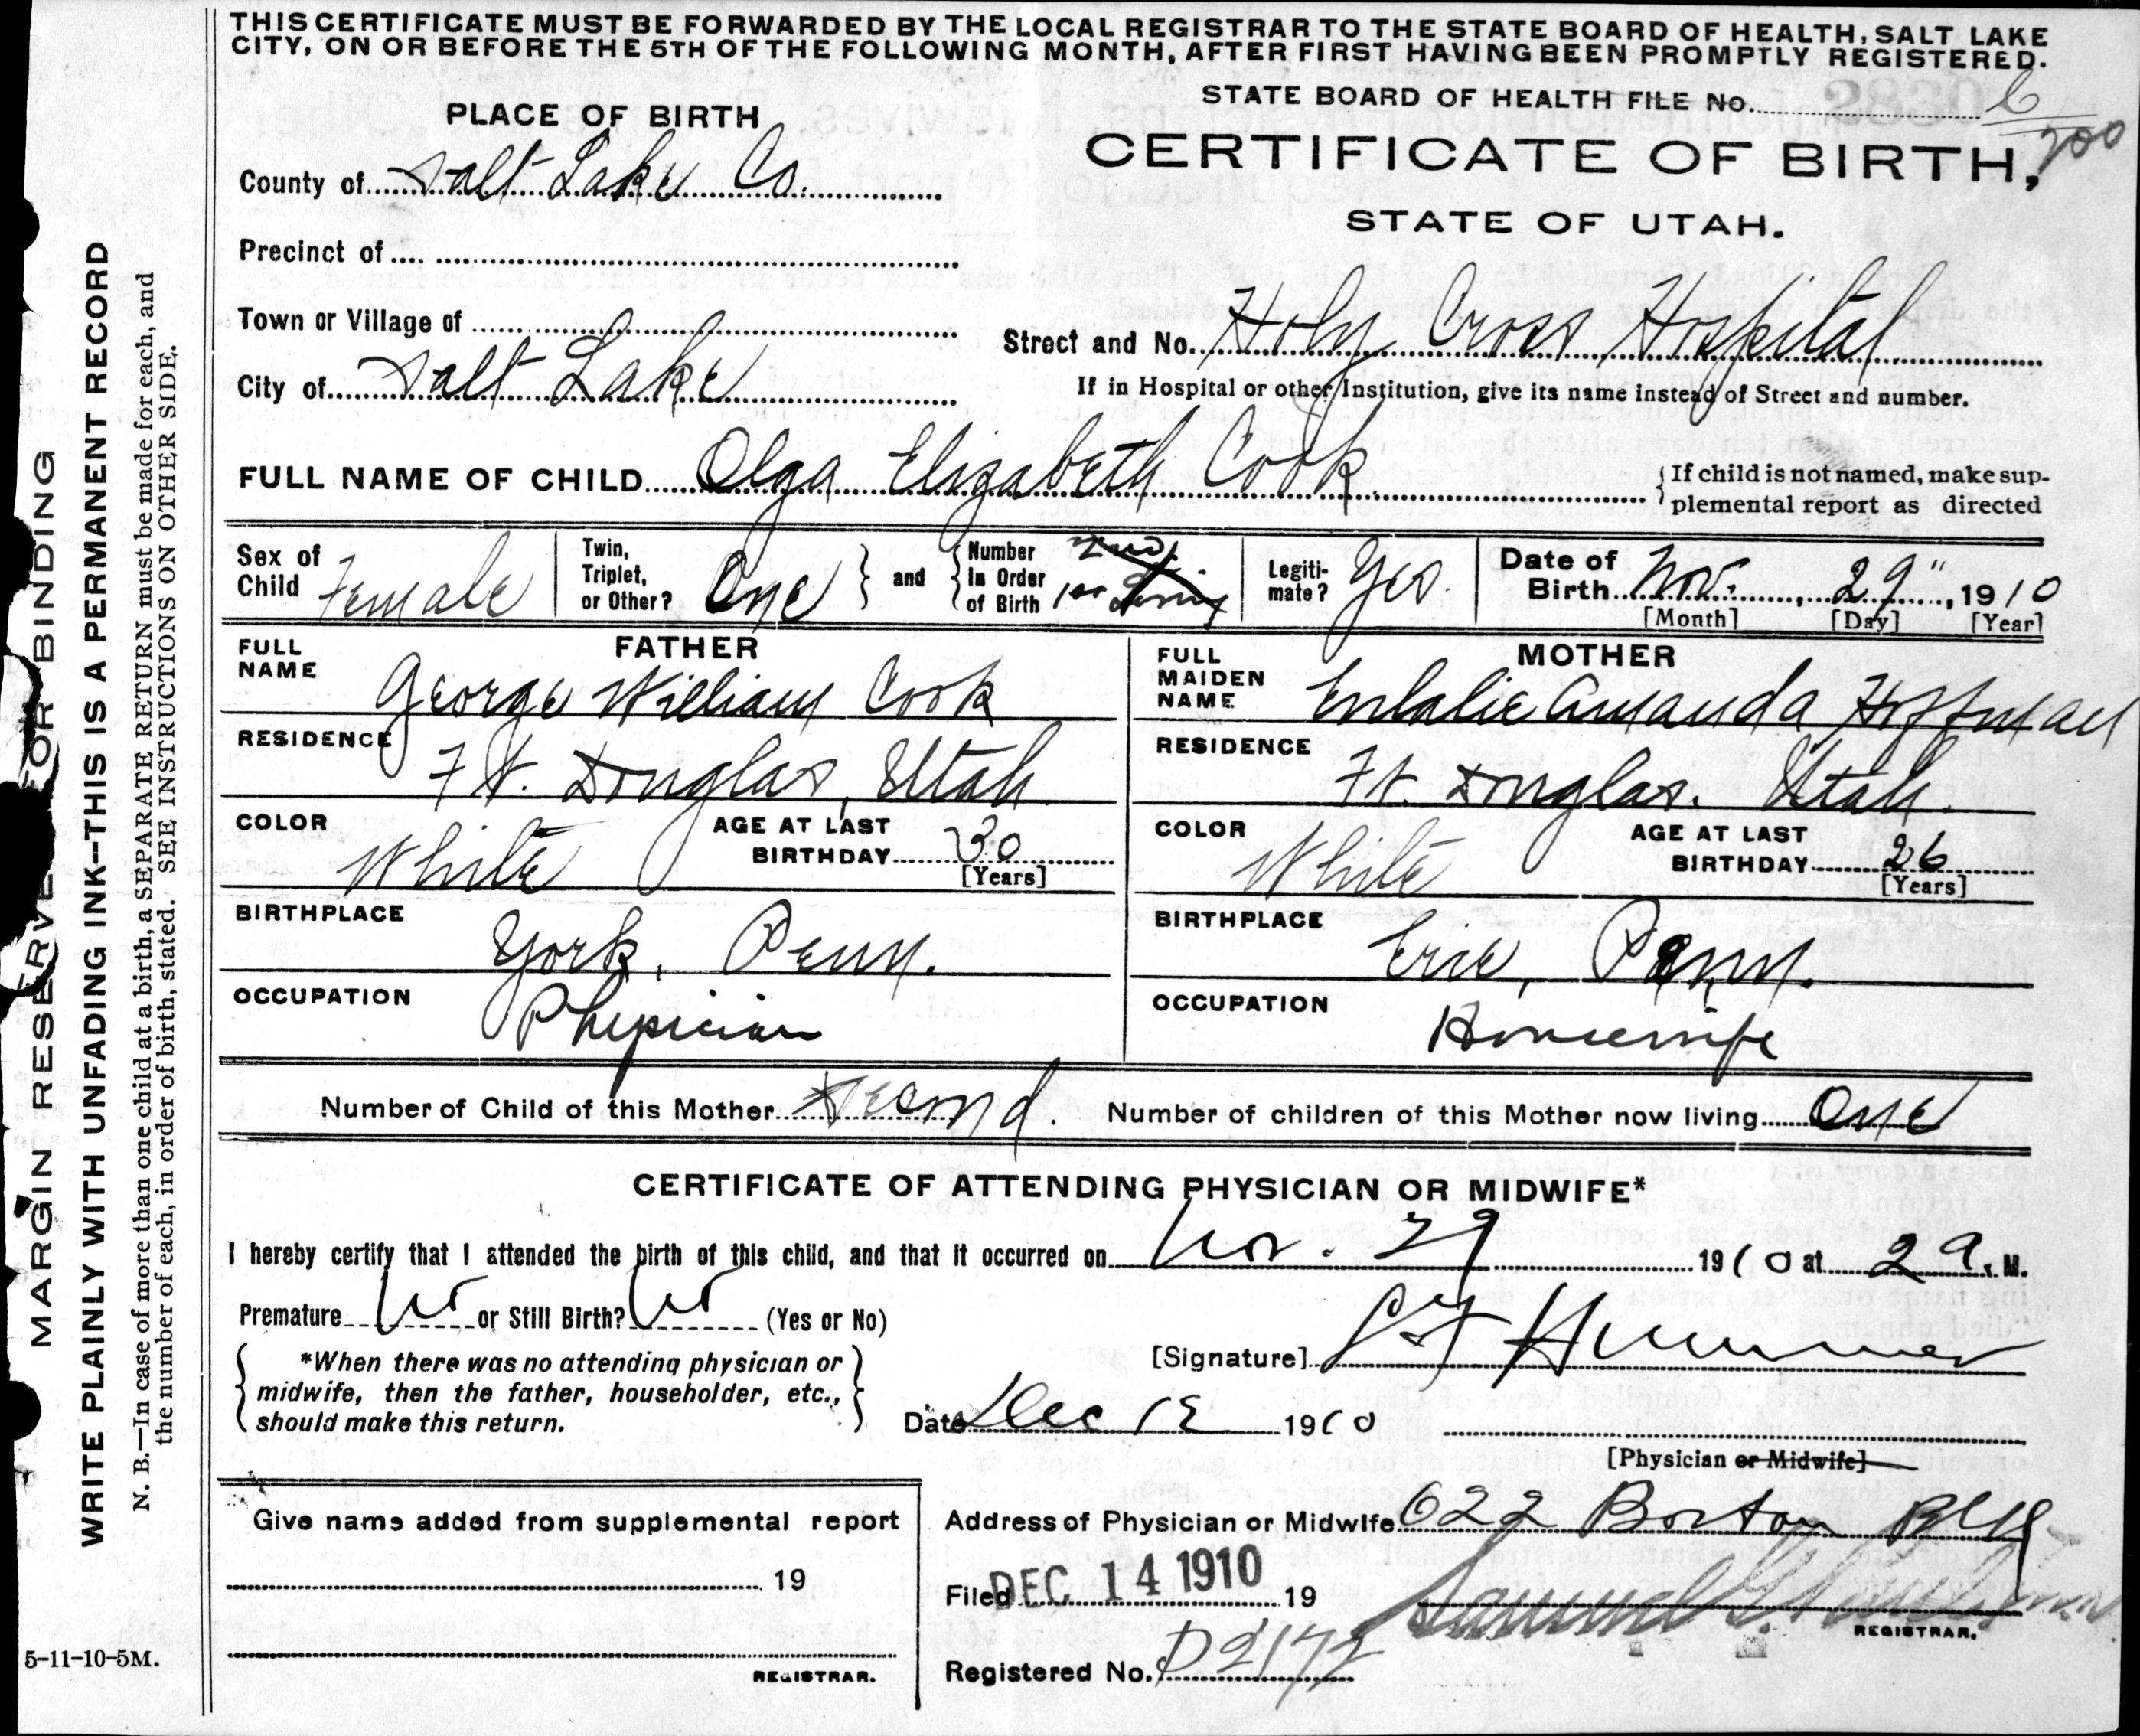 THIS CERTIFICATE MUST BE FORWARDED BY THE LOCAL REGISTRAR TO THE STATE BOARD OF HEALTH, SALT LAKE
CITY, ON OR BEFORE THE 5TH OF THE FOLLOWING MONTH, AFTER FIRST HAVING BEEN PROMPTLY REGISTERED.
STATE BOARD OF HEALTH FILE No. 6
200
PLACE OF BIRTH
CERTIFICATE OF BIRTH,
STATE OF UTAH.
County of Salt Lake Co.
Precinct of
Town or Village of
Street and No. Holy Cross Hospital
City of Salt Lake
If in Hospital or other Institution, give its name instead of Street and number.
FULL NAME OF CHILD Olga Elizabeth Cook
{ If child is not named, make sup-
plemental report as directed
Sex of Child Female
Twin, Triplet, or Other? One } and { Number In Order of Birth 2nd 1st living
Legiti-mate? Yes.
Date of Birth Nov. 29", 1910
[Month] [Day] [Year]
FATHER
FULL NAME George William Cook
RESIDENCE Ft. Douglas, Utah
COLOR White
AGE AT LAST BIRTHDAY 30
[Years]
BIRTHPLACE York, Penn.
OCCUPATION Physician
MOTHER
FULL MAIDEN NAME Eulalie Amanda Hoffman
RESIDENCE Ft. Douglas. Utah.
COLOR White
AGE AT LAST BIRTHDAY 26
[Years]
BIRTHPLACE Erie, Penn.
OCCUPATION Housewife
Number of Child of this Mother Second. Number of children of this Mother now living One
CERTIFICATE OF ATTENDING PHYSICIAN OR MIDWIFE*
I hereby certify that I attended the birth of this child, and that it occurred on Nov. 29 1910 at 2 a. M.
Premature No or Still Birth? No (Yes or No)
*When there was no attending physician or
midwife, then the father, householder, etc.,
should make this return.
[Signature] Hummer
Date Dec 12 1910
[Physician or Midwife]
Give name added from supplemental report
19
REGISTRAR.
Address of Physician or Midwife 622 Boston Blk
Filed DEC 14 1910 19
Samuel G.
REGISTRAR.
Registered No. D2172
5-11-10-5M.
MARGIN RESERVE FOR BINDING
WRITE PLAINLY WITH UNFADING INK--THIS IS A PERMANENT RECORD
N. B.—In case of more than one child at a birth, a SEPARATE RETURN must be made for each, and
the number of each, in order of birth, stated. SEE INSTRUCTIONS ON OTHER SIDE.